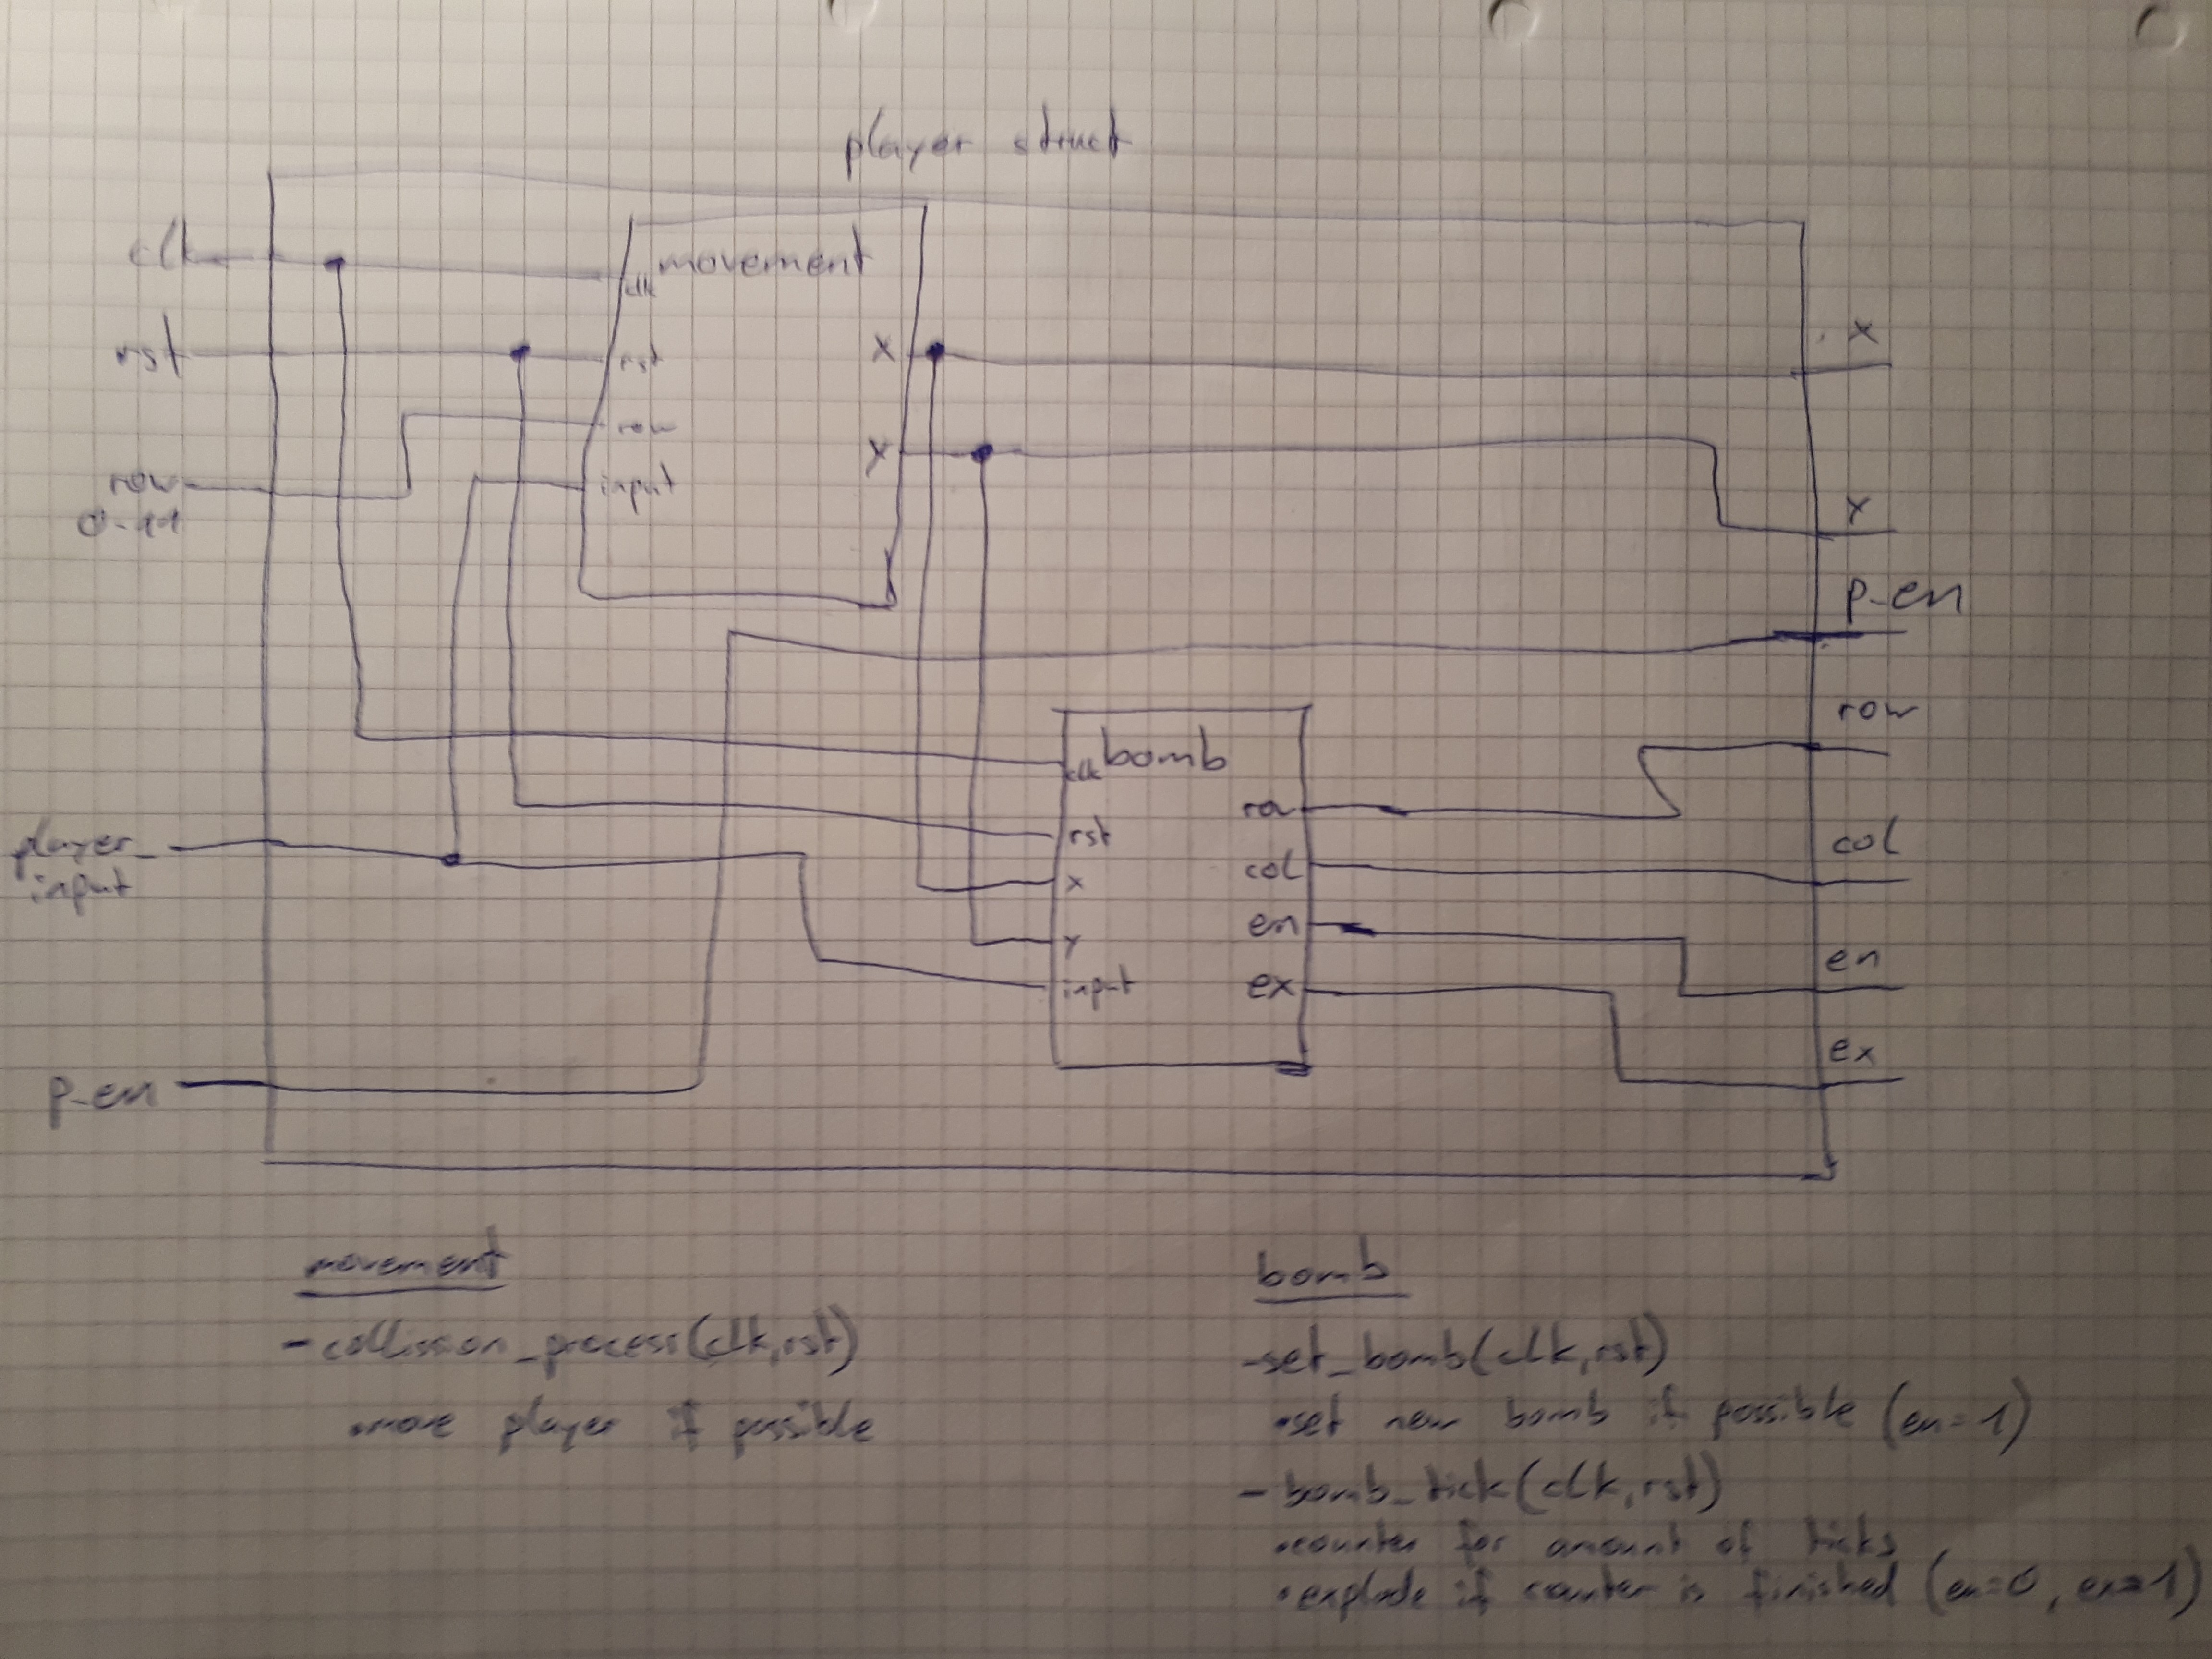 player struct
clk
rst
row
0-11
player_
input
p_en
movement
clk
rst
row
input
x
y
bomb
clk
rst
x
y
input
row
col
en
ex
x
y
p_en
row
col
en
ex
movement
- collission_process(clk,rst)
•move player if possible
bomb
-set_bomb(clk,rst)
•set new bomb if possible (en=1)
- bomb_tick(clk,rst)
•counter for amount of ticks
•explode if counter is finished (en=0, ex=1)